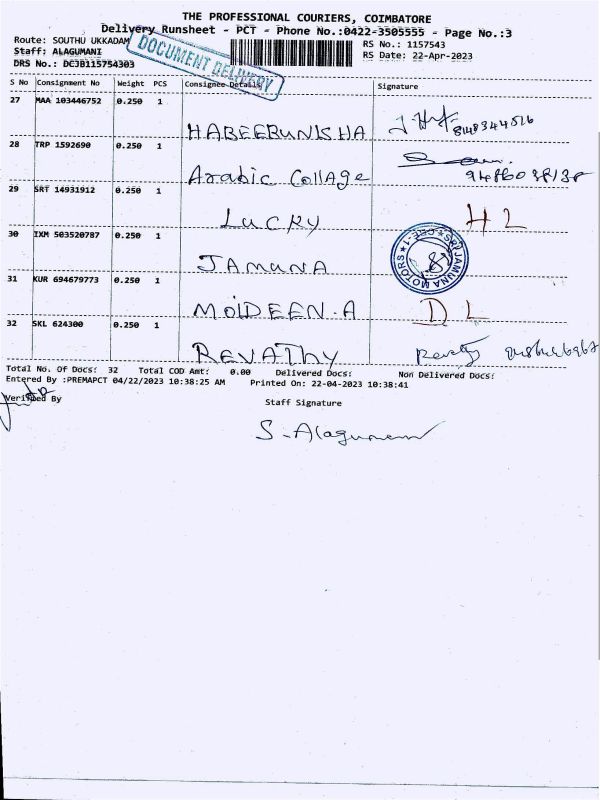 THE PROFESSIONAL COURIERS, COIMBATORE
Delivery Runsheet - PCT - Phone No.:0422-3505555 - Page No.:3
Route: SOUTHU UKKADAM
RS No.: 1157543
Staff: ALAGUMANI
RS Date: 22-Apr-2023
DRS No.: DC3D115754303
DOCUMENT DELIVERY
S No Consignment No Weight PCS Consignee Details Signature
27 MAA 103446752 0.250 1
HABEEBUNISHA
28 TRP 1592690 0.250 1
Arabic Collage
29 SRT 14931912 0.250 1
Lucky H L
30 IXM 503520787 0.250 1
JAMUNA
SRI JAMUNA MOTORS ★ CBE-1 ★
31 KUR 694679773 0.250 1
MOIDEEN.A D L
32 SKL 624300 0.250 1
REVATHY Revathy
Total No. Of Docs: 32 Total COD Amt: 0.00 Delivered Docs: Non Delivered Docs:
Entered By :PREMAPCT 04/22/2023 10:38:25 AM Printed On: 22-04-2023 10:38:41
Verified By
Staff Signature
S. Alagumani